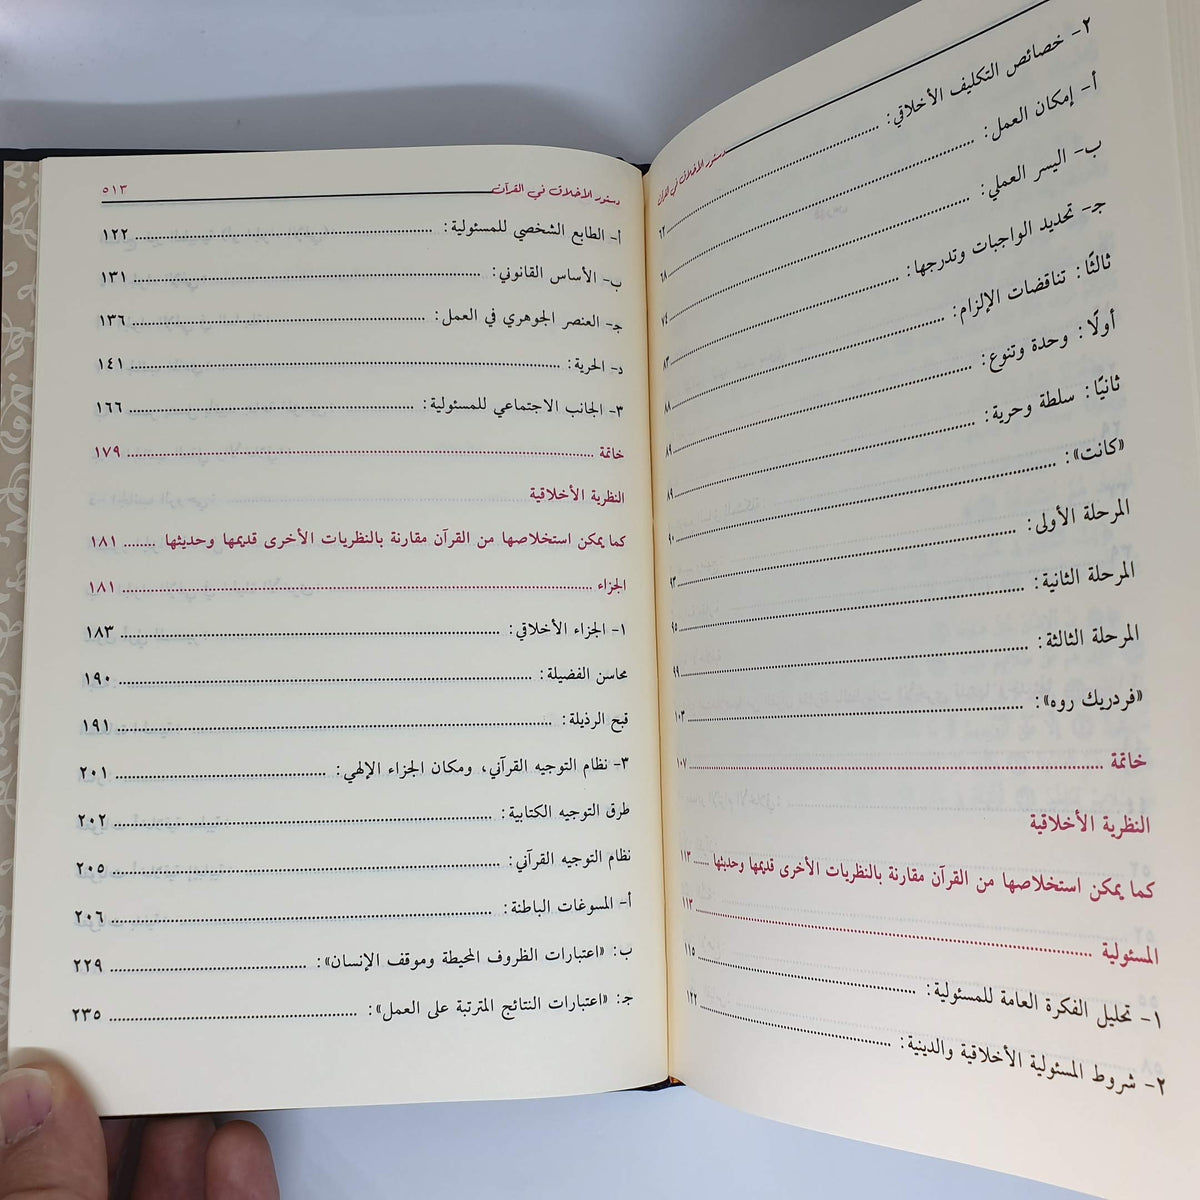 دستور الأخلاق في القرآن
٢- خصائص التكليف الأخلاقي: ٦٢
أ- إمكان العمل: ٦٨
ب- اليسر العملي: ٧٤
جـ- تحديد الواجبات وتدرجها: ٨٣
ثالثًا: تناقضات الإلزام: ٨٨
أولًا: وحدة وتنوع: ٨٩
ثانيًا: سلطة وحرية: ٨٩
«كانت»: ٩٠
المرحلة الأولى: ٩٣
المرحلة الثانية: ٩٥
المرحلة الثالثة: ٩٩
«فردريك روه»: ١٠٣
خاتمة ١٠٧
النظرية الأخلاقية
كما يمكن استخلاصها من القرآن مقارنة بالنظريات الأخرى قديمها وحديثها ١١٣
المسئولية ١١٣
١- تحليل الفكرة العامة للمسئولية: ١١٥
٢- شروط المسئولية الأخلاقية والدينية: ١٢٢
دستور الأخلاق في القرآن ٥١٣
أ- الطابع الشخصي للمسئولية: ١٢٢
ب- الأساس القانوني: ١٣١
جـ- العنصر الجوهري في العمل: ١٣٦
د- الحرية: ١٤١
٣- الجانب الاجتماعي للمسئولية: ١٦٦
خاتمة ١٧٩
النظرية الأخلاقية
كما يمكن استخلاصها من القرآن مقارنة بالنظريات الأخرى قديمها وحديثها ١٨١
الجزاء ١٨١
١- الجزاء الأخلاقي: ١٨٣
محاسن الفضيلة: ١٩٠
قبح الرذيلة: ١٩١
٣- نظام التوجيه القرآني، ومكان الجزاء الإلهي: ٢٠١
طرق التوجيه الكتابية: ٢٠٢
نظام التوجيه القرآني: ٢٠٥
أ- المسوغات الباطنة: ٢٠٦
ب: «اعتبارات الظروف المحيطة وموقف الإنسان»: ٢٢٩
جـ: «اعتبارات النتائج المترتبة على العمل»: ٢٣٥